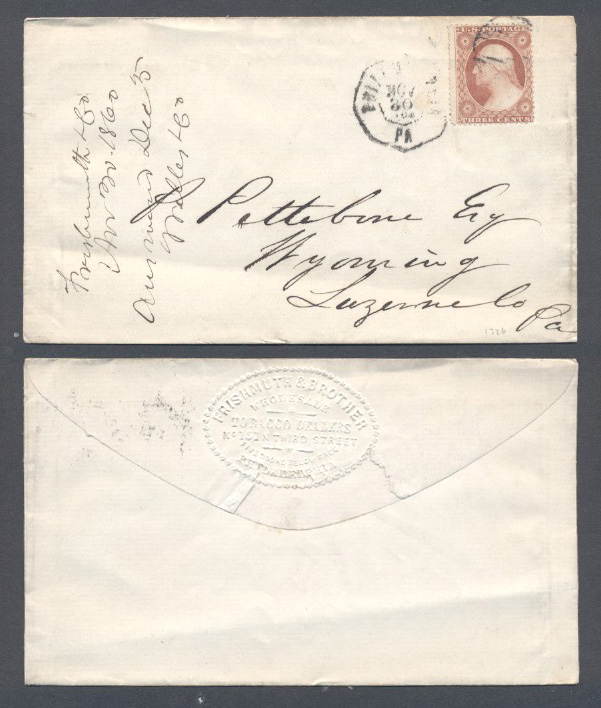 Frishmuth & Co
Nov 30 1860
Answered Dec 5
PHILADELPHIA
NOV
30
PA
U.S. POSTAGE
THREE CENTS
P Pettebone Esq
Wyoming
Luzerne Co
Pa
1726
FRISHMUTH & BROTHER
WHOLESALE
TOBACCO DEALERS
N. THIRD STREET
PHILADELPHIA